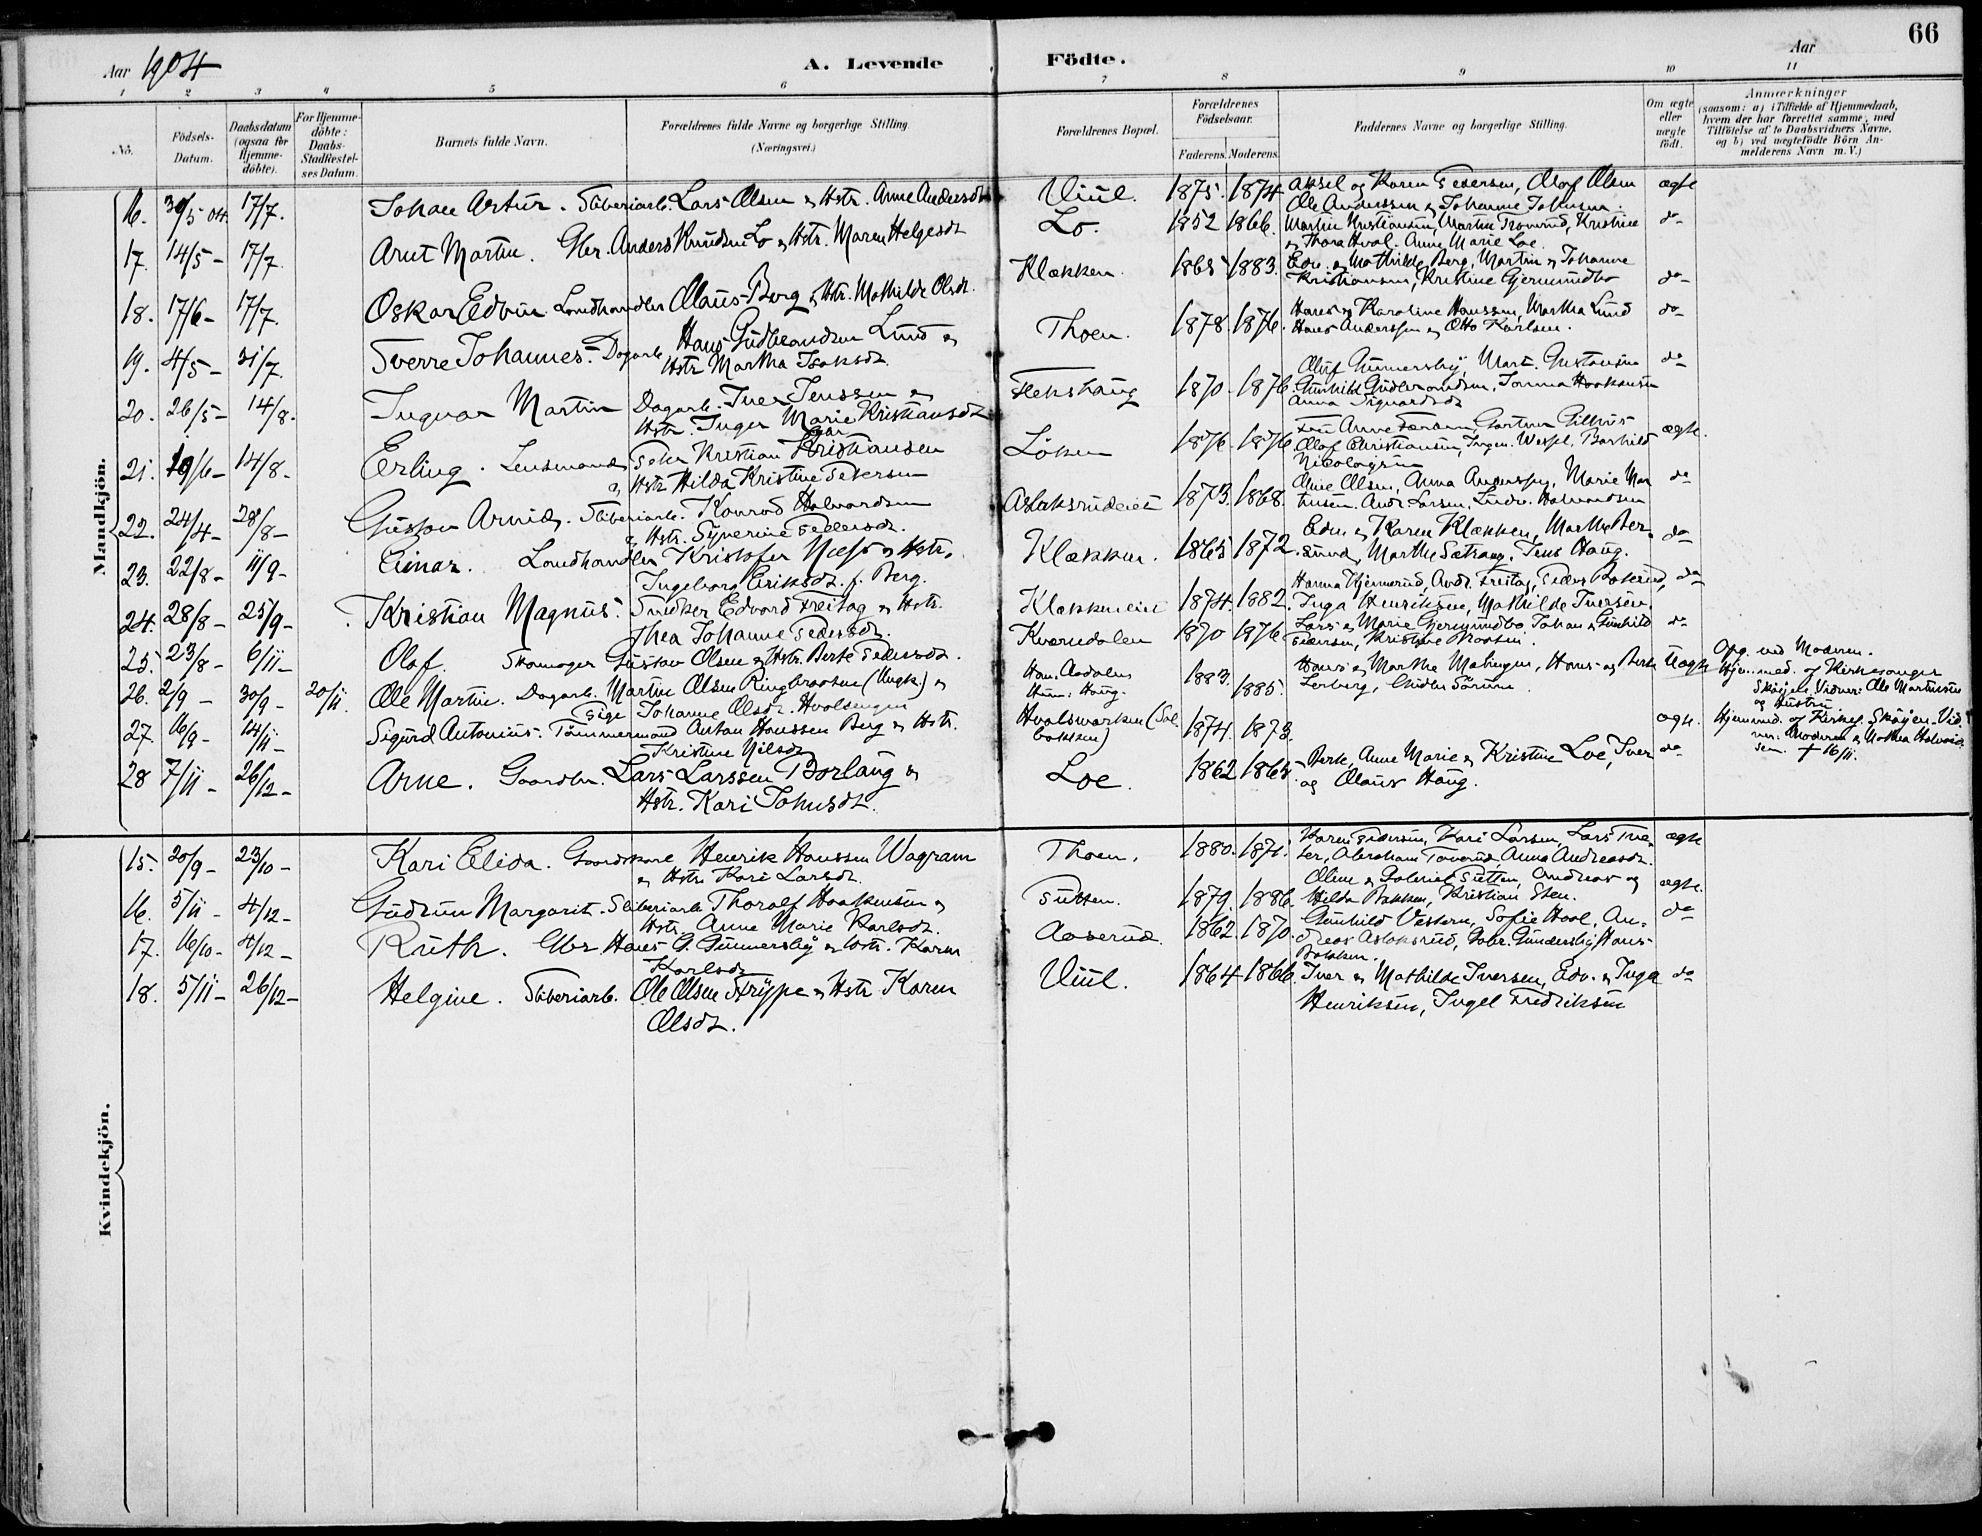 66
Aar 1904
A. Levende Födte.
Aar
1 2 3 4 5 6 7 8 9 10 11
No.
Födsels-Datum.
Daabsdatum (ogsaa for Hjemme-döbte).
For Hjemme-döbte: Daabs-Stadfestel-ses Datum.
Barnets fulde Navn.
Forældrenes fulde Navne og borgerlige Stilling. (Næringsvei.)
Forældrenes Bopæl.
Forældrenes Födselsaar.
Faderens. Moderens.
Faddernes Navne og borgerlige Stilling.
Om ægte eller uægte födt.
Anmærkninger
(saasom: a) i Tilfælde af Hjemmedaab, hvem der har forrettet samme, med Tilföielse af to Daabsvidners Navne, og b) ved uægtefödte Börn An-melderens Navn m. V.)
Mandkjön.
16. 30/5 04. 17/7. Johan Artur. Sliberiarb. Lars Olsen & Hstr. Anne Andersdt. Viul. 1875. 1874. Aksel og Karen Pedersen, Olaf Olsen ægte
Ole Anderssen & Johanne Johnsen.
17. 14/5 - 17/7. Arnt Martin. Gbr. Anders Knudsen Lo & Hstr. Maren Helgesdt. Lo. 1852 1866. Martin Kristiansen, Martin Tronrud, Kristine do
& Thora Hval. Anne Marie Loe.
18. 17/6 - 17/7. Oskar Edvin Landhandler Olaus Berg & Hstr. Mathilde Olsdt. Klækken. 1865 1883. Edv. & Mathilde Berg, Martin & Johanne
Kristiansen, Kristine Gjermundbo do
19. 4/5 - 31/7. Sverre Johannes. Dagarb. Hans Gudbrandsen Lund &
Hstr. Martha Isaksdt. Thoen. 1878. 1876. Hans og Karoline Hanssen, Martha Lund do
Hans Anderssen & Otto Karlsen.
20. 26/5 - 14/8. Ingvar Martin Dagarb. Iver Jenssen &
Hstr. Inger Marie Kristiansdt. Flekshaug 1870. 1876. Oluf Gunnersby, Mart. Gustavsen do
Gunhild Gudbrandsen,
21. 19/6 - 14/8 - Erling. Lensmand Peter Kristian Kristiansen
& Hstr. Hilda Kristine Petersen Löken 1876. 1876. ægte.
Olaf Christiansen, Ingen. Wessel,
22. 24/4 - 28/8 - Gustav Arnid. Sliberiarb. Konrad Halvardsen
& Hstr. Syverine Pedersdt. Aslaksrudeiet 1873. 1868. Oline Olsen, Anna Anderssen, Marie Mar- do
tinsen. Andr. Larsen, Ludv. Halvardsen
23. 22/8 - 11/9 - Einar. Landhandler Kristofer Næss & Hstr.
Ingeborg Eriksdt. f. Berg. Klækken. 1865 1872. Edv. & Karen Klækken, Marthe Ber- do
sund, Marthe Sætrang, Jens Haug.
24. 28/8 - 25/9 - Kristian Magnus. Snedker Edvard Freitag & Hstr.
Thea Johanne Pedersdt. Klækkeneiet 1874. 1882. Hanna Hjemerud, Andr. Freitag, do
Inga Henriksen, Mathilde Iversen.
25. 23/8 - 6/11 - Olaf. Skomager Gustav Olsen & Hstr. Berte Pedersdt. Kværndalen 1870 1876 Lars & Marie Gjermundbo Johan & Gunhild do
Pedersen, Kristine
26. 2/9 - 30/9 - 20/11. Ole Martin. Dagarb. Martin Olsen Ringbraaten (Ungk.) &
Pige Johanne Olsdt. Hvalsengen Han. Aasdalen
Hun: Haug. 1883. 1885. Hans & Marthe Mælingen, Hans & Berte Uægte
Lerberg, Gulbr. Sörum. Opg. ved Moderen.
Hjemmed. af Kirkesanger
Skøjen. Vidner: Ole Martinsen
og Hustru
27. 16/9 - 14/11 - Sigurd Antonius. Tömmermand Anton Hanssen Berg & Hstr.
Kristine Nilsdt. Hvalsmarken (Sol-
bakken) 1874. 1873. ægte. Hjemmed. af Kirkes. Skøjen. Vid
ner: Moderen & Mathea Halvard-
sen. † 16/11.
28 7/11 - 26/12 - Arne. Gaardbr. Lars Larssen Borlaug &
Hstr. Kari Johnsdt. Loe. 1862 1865 Berte, Anne Marie & Kristine Loe, Iver do
og Olaus Haug.
Kvindekjön.
15. 20/9 - 23/10 - Kari Elida. Gaardskarl Henrik Hanssen Wagram
& Hstr. Kari Larsdt. Thoen. 1880. 1871. Karen Pedersen, Kari Larsen, Lars ægte
Abraham Anna Andreasdt.
16. 5/11 - 4/12 - Gudrun Margarit. Sliberiarb. Thoralf Haakensen &
Hstr. Anne Marie Karlsdt. Putten. 1879. 1886. Oline & Gabriel Putten, Andreas og ægte.
Hilda Bakken, Kristian Sten.
17. 16/10 - 4/12 - Ruth. Gbr. Hans G. Gunnersby & Hstr. Karen
Karlsdt. Aaserud. 1862. 1870. Gunhild Vestern, Sofie Hval, An- do
dreas Aslaksrud, Gabr. Gundersby, Hans
Bakken.
18. 5/11 - 26/12 - Helgine. Sliberiarb. Ole Olsen Strype & Hstr. Karen
Olsdt. Viul. 1864 1866. Iver & Mathilde Iversen, Edv. & Inga do
Henriksen, Ingel Fredriksen